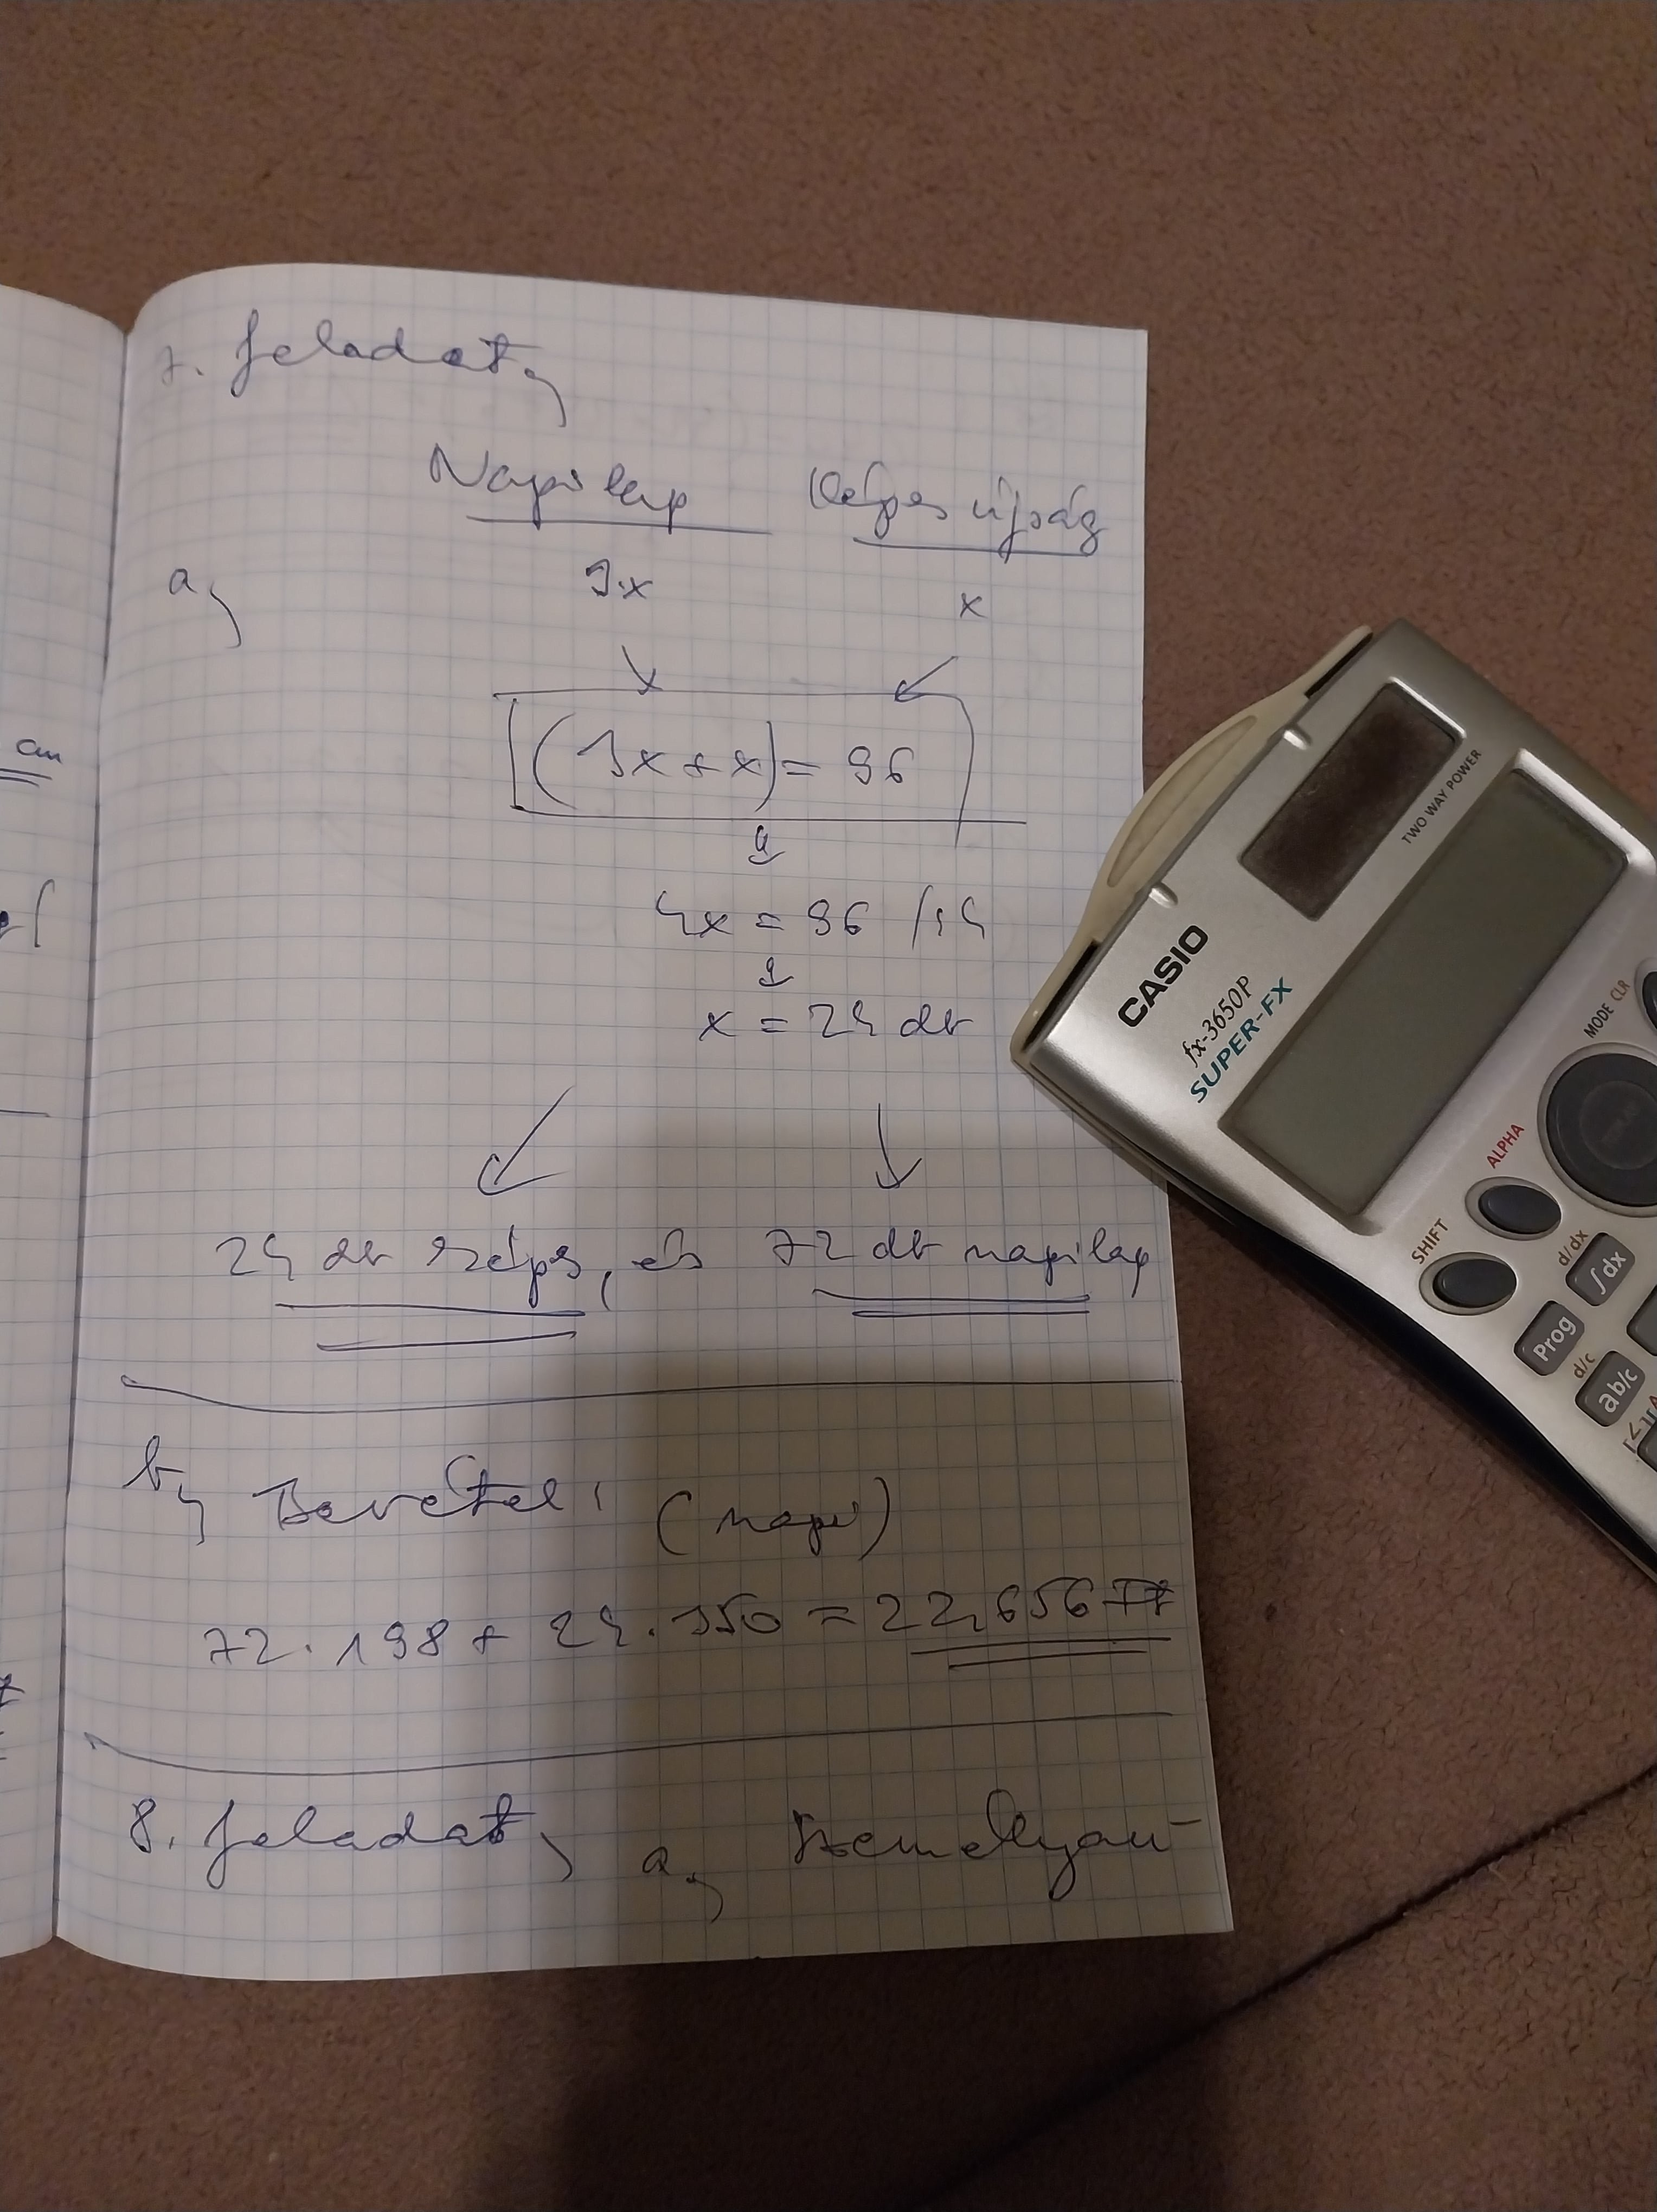 7. feladat,
Napilap Képes újság
a, 3·x x
(3x + x) = 96
4x = 96 /:4
x = 24 db
24 db képes, és 72 db napilap
b, Bevétel: (napi)
72·198 + 24·350 = 22,656 Ft
8. feladat, a, Személyau-
cm
CASIO
fx-3650P
SUPER-FX
TWO WAY POWER
MODE CLR
ALPHA
SHIFT
d/dx
∫dx
Prog
d/c
ab/c